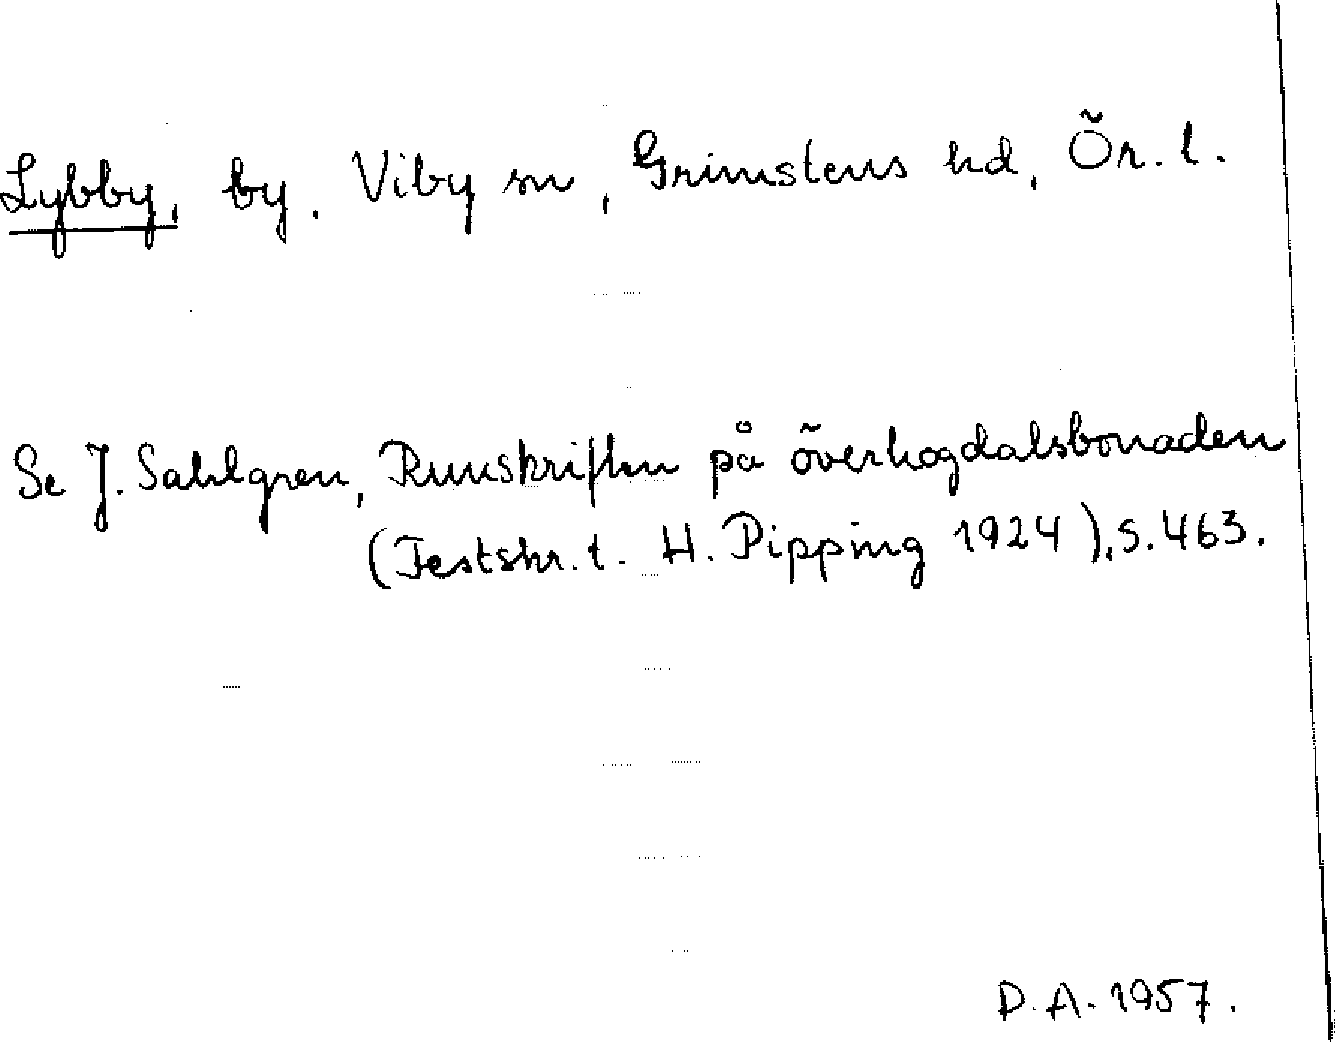 Lybby, by. Viby sn, Grimstens hd, Ör. l.
Se J. Sahlgren, Runskriften på överhogdalsbonaden
(Festskr. t. H. Pipping 1924), s. 463.
D. A. 1957.